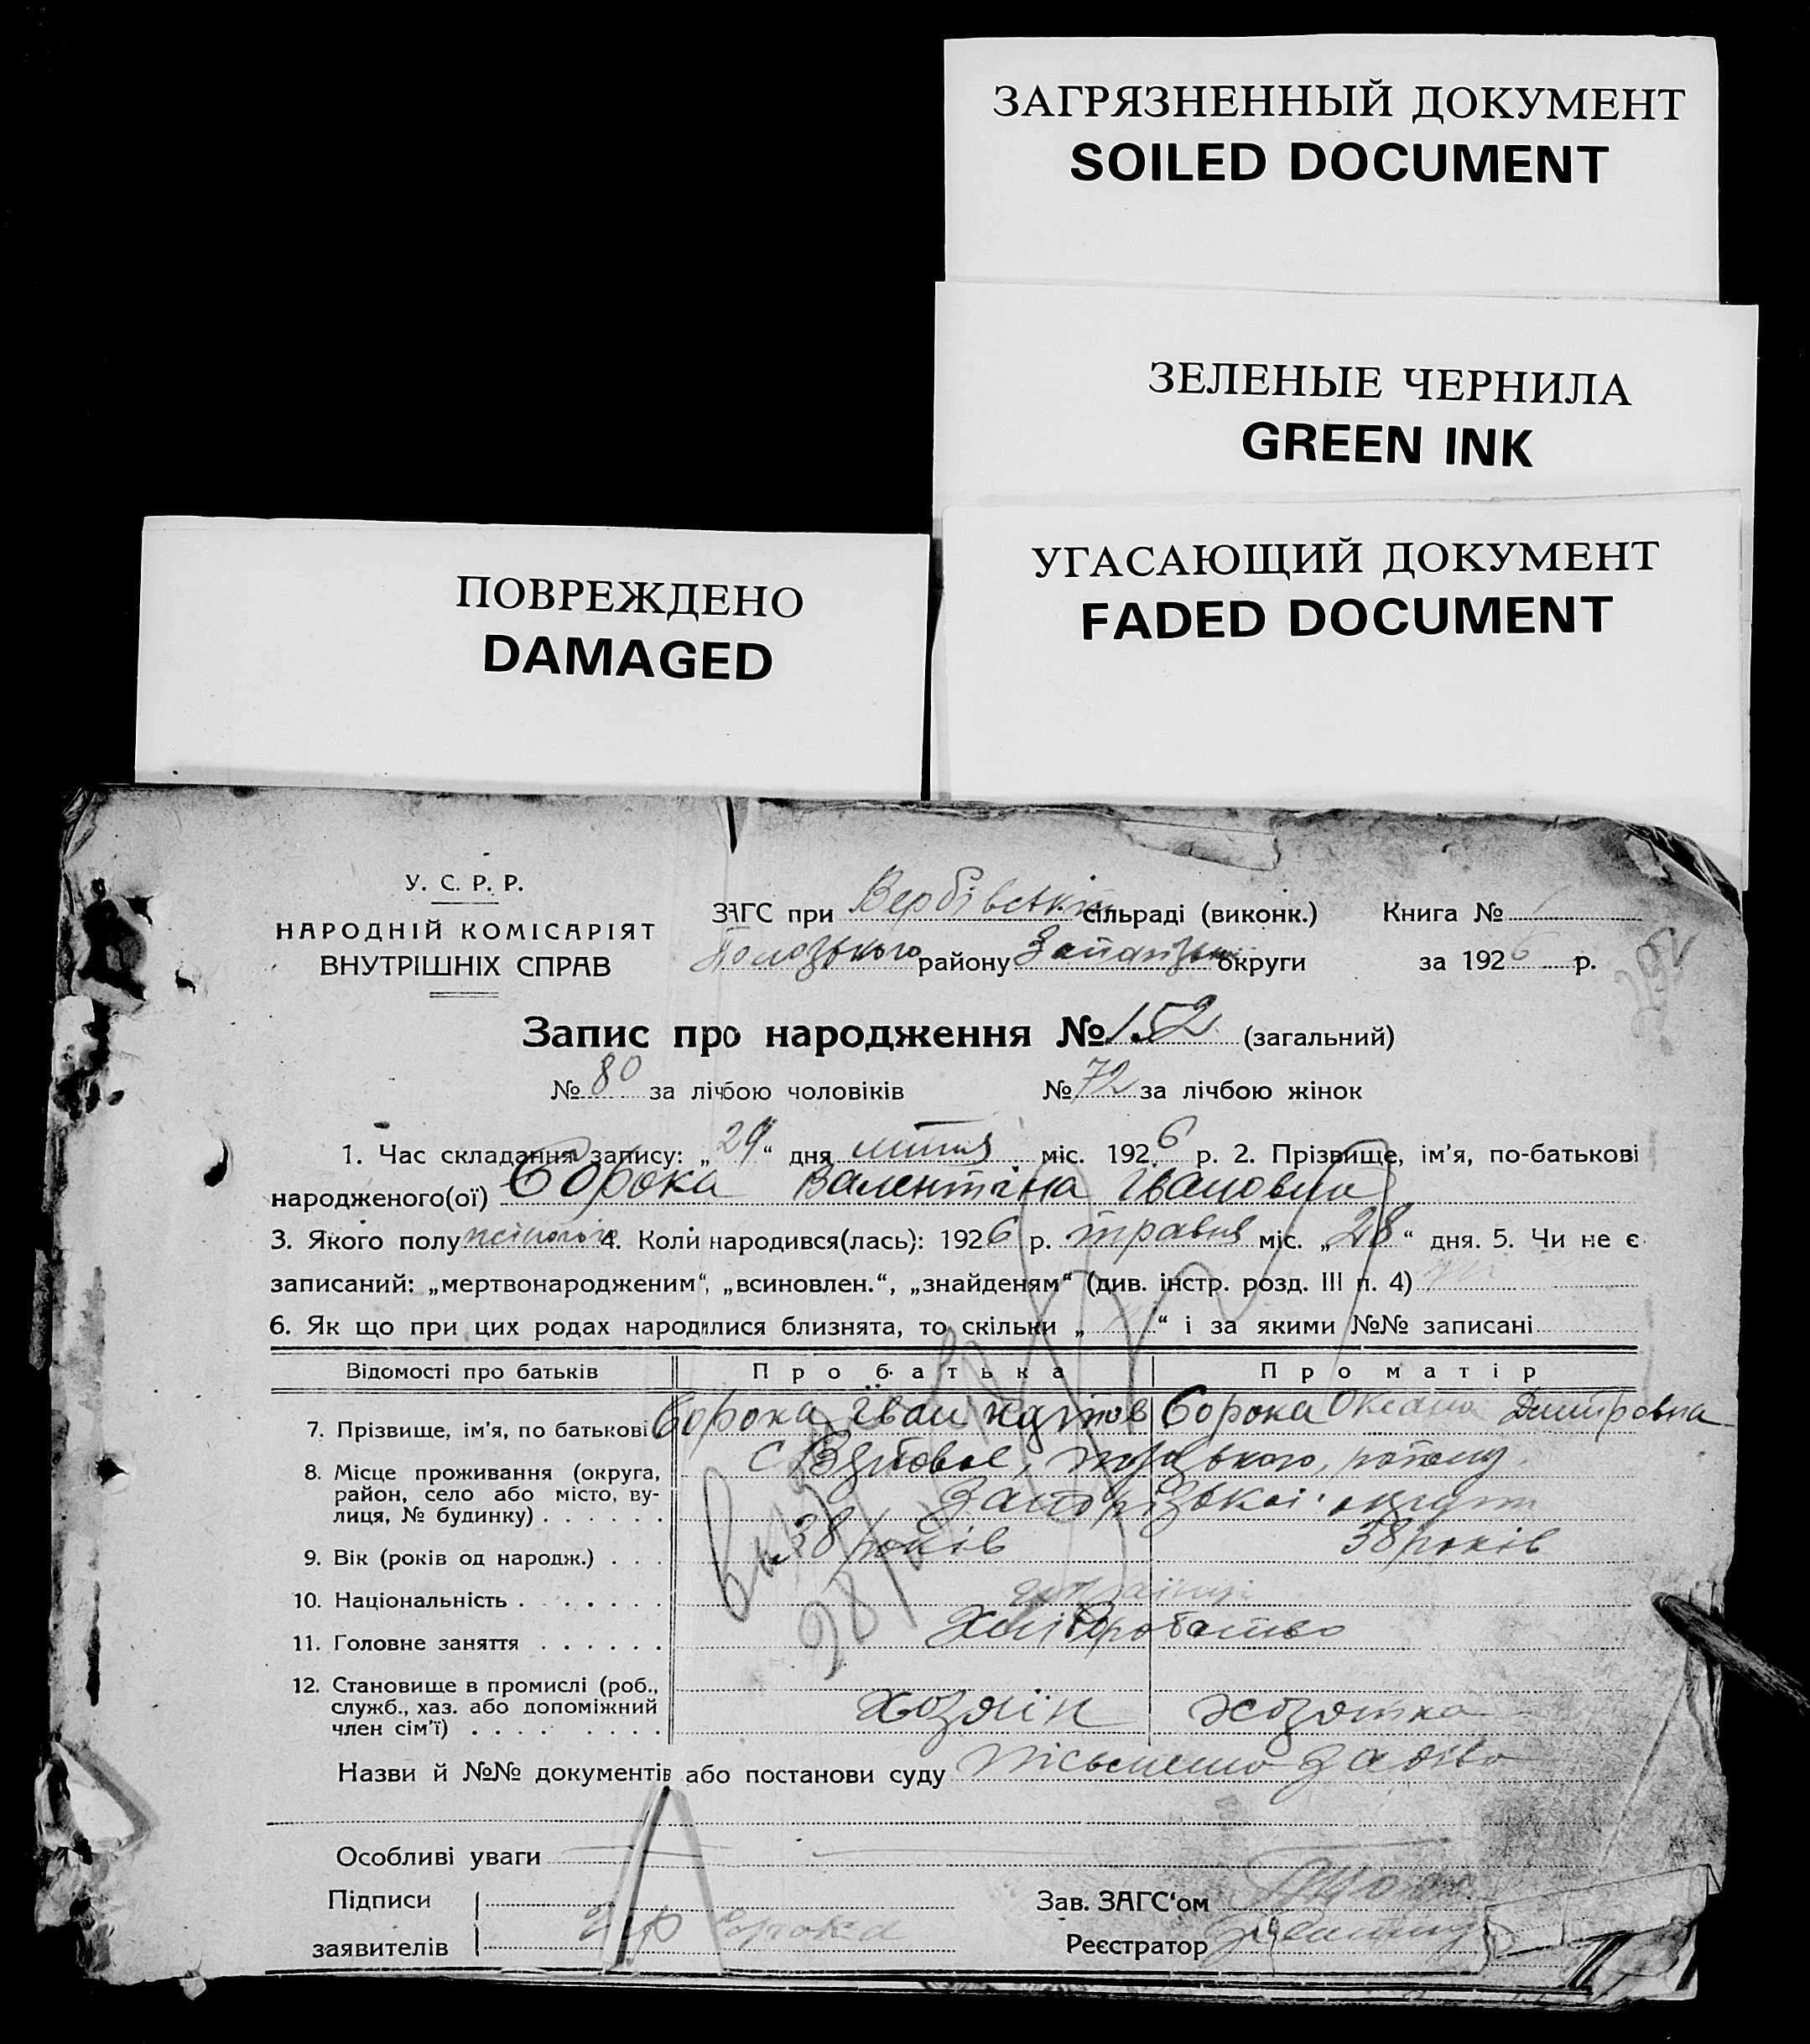 ЗАГРЯЗНЕННЫЙ ДОКУМЕНТ
SOILED DOCUMENT
ЗЕЛЕНЫЕ ЧЕРНИЛА
GREEN INK
УГАСАЮЩИЙ ДОКУМЕНТ
FADED DOCUMENT
ПОВРЕЖДЕНО
DAMAGED
У. С. Р. Р.
НАРОДНІЙ КОМІСАРІЯТ
ВНУТРІШНІХ СПРАВ
ЗАГС при Вербівській сільраді (виконк.) Книга №
району округи за 1926 р.
Запис про народження № 152 (загальний)
№ 80 за лічбою чоловіків № 72 за лічбою жінок
1. Час складання запису: „29“ дня міс. 1926 р. 2. Прізвище, ім'я, по-батькові
народженого(ої) Сорока Валентіна Івановна
3. Якого полу жіночого 4. Коли народився(лась): 1926 р. травня міс. „28“ дня. 5. Чи не є
записаний: „мертвонародженим“, „всиновлен.“, „знайденям“ (див. інстр. розд. III п. 4)
6. Як що при цих родах народилися близнята, то скільки „ “ і за якими №№ записані
Відомості про батьків Про батька Про матір
7. Прізвище, ім'я, по батькові Сорока Іван Сорока Оксана Дмитровна
8. Місце проживання (округа,
район, село або місто, ву-
лиця, № будинку) Запорізької округи
9. Вік (років од народж.) 38 років 38 років
10. Національність українці
11. Головне заняття Хліборобство
12. Становище в промислі (роб.,
служб., хаз. або допоміжний
член сім'ї) хозяїн хозяйка
Назви й №№ документів або постанови суду
Особливі уваги
Підписи
заявителів Сорока
Зав. ЗАГС'ом
Реєстратор